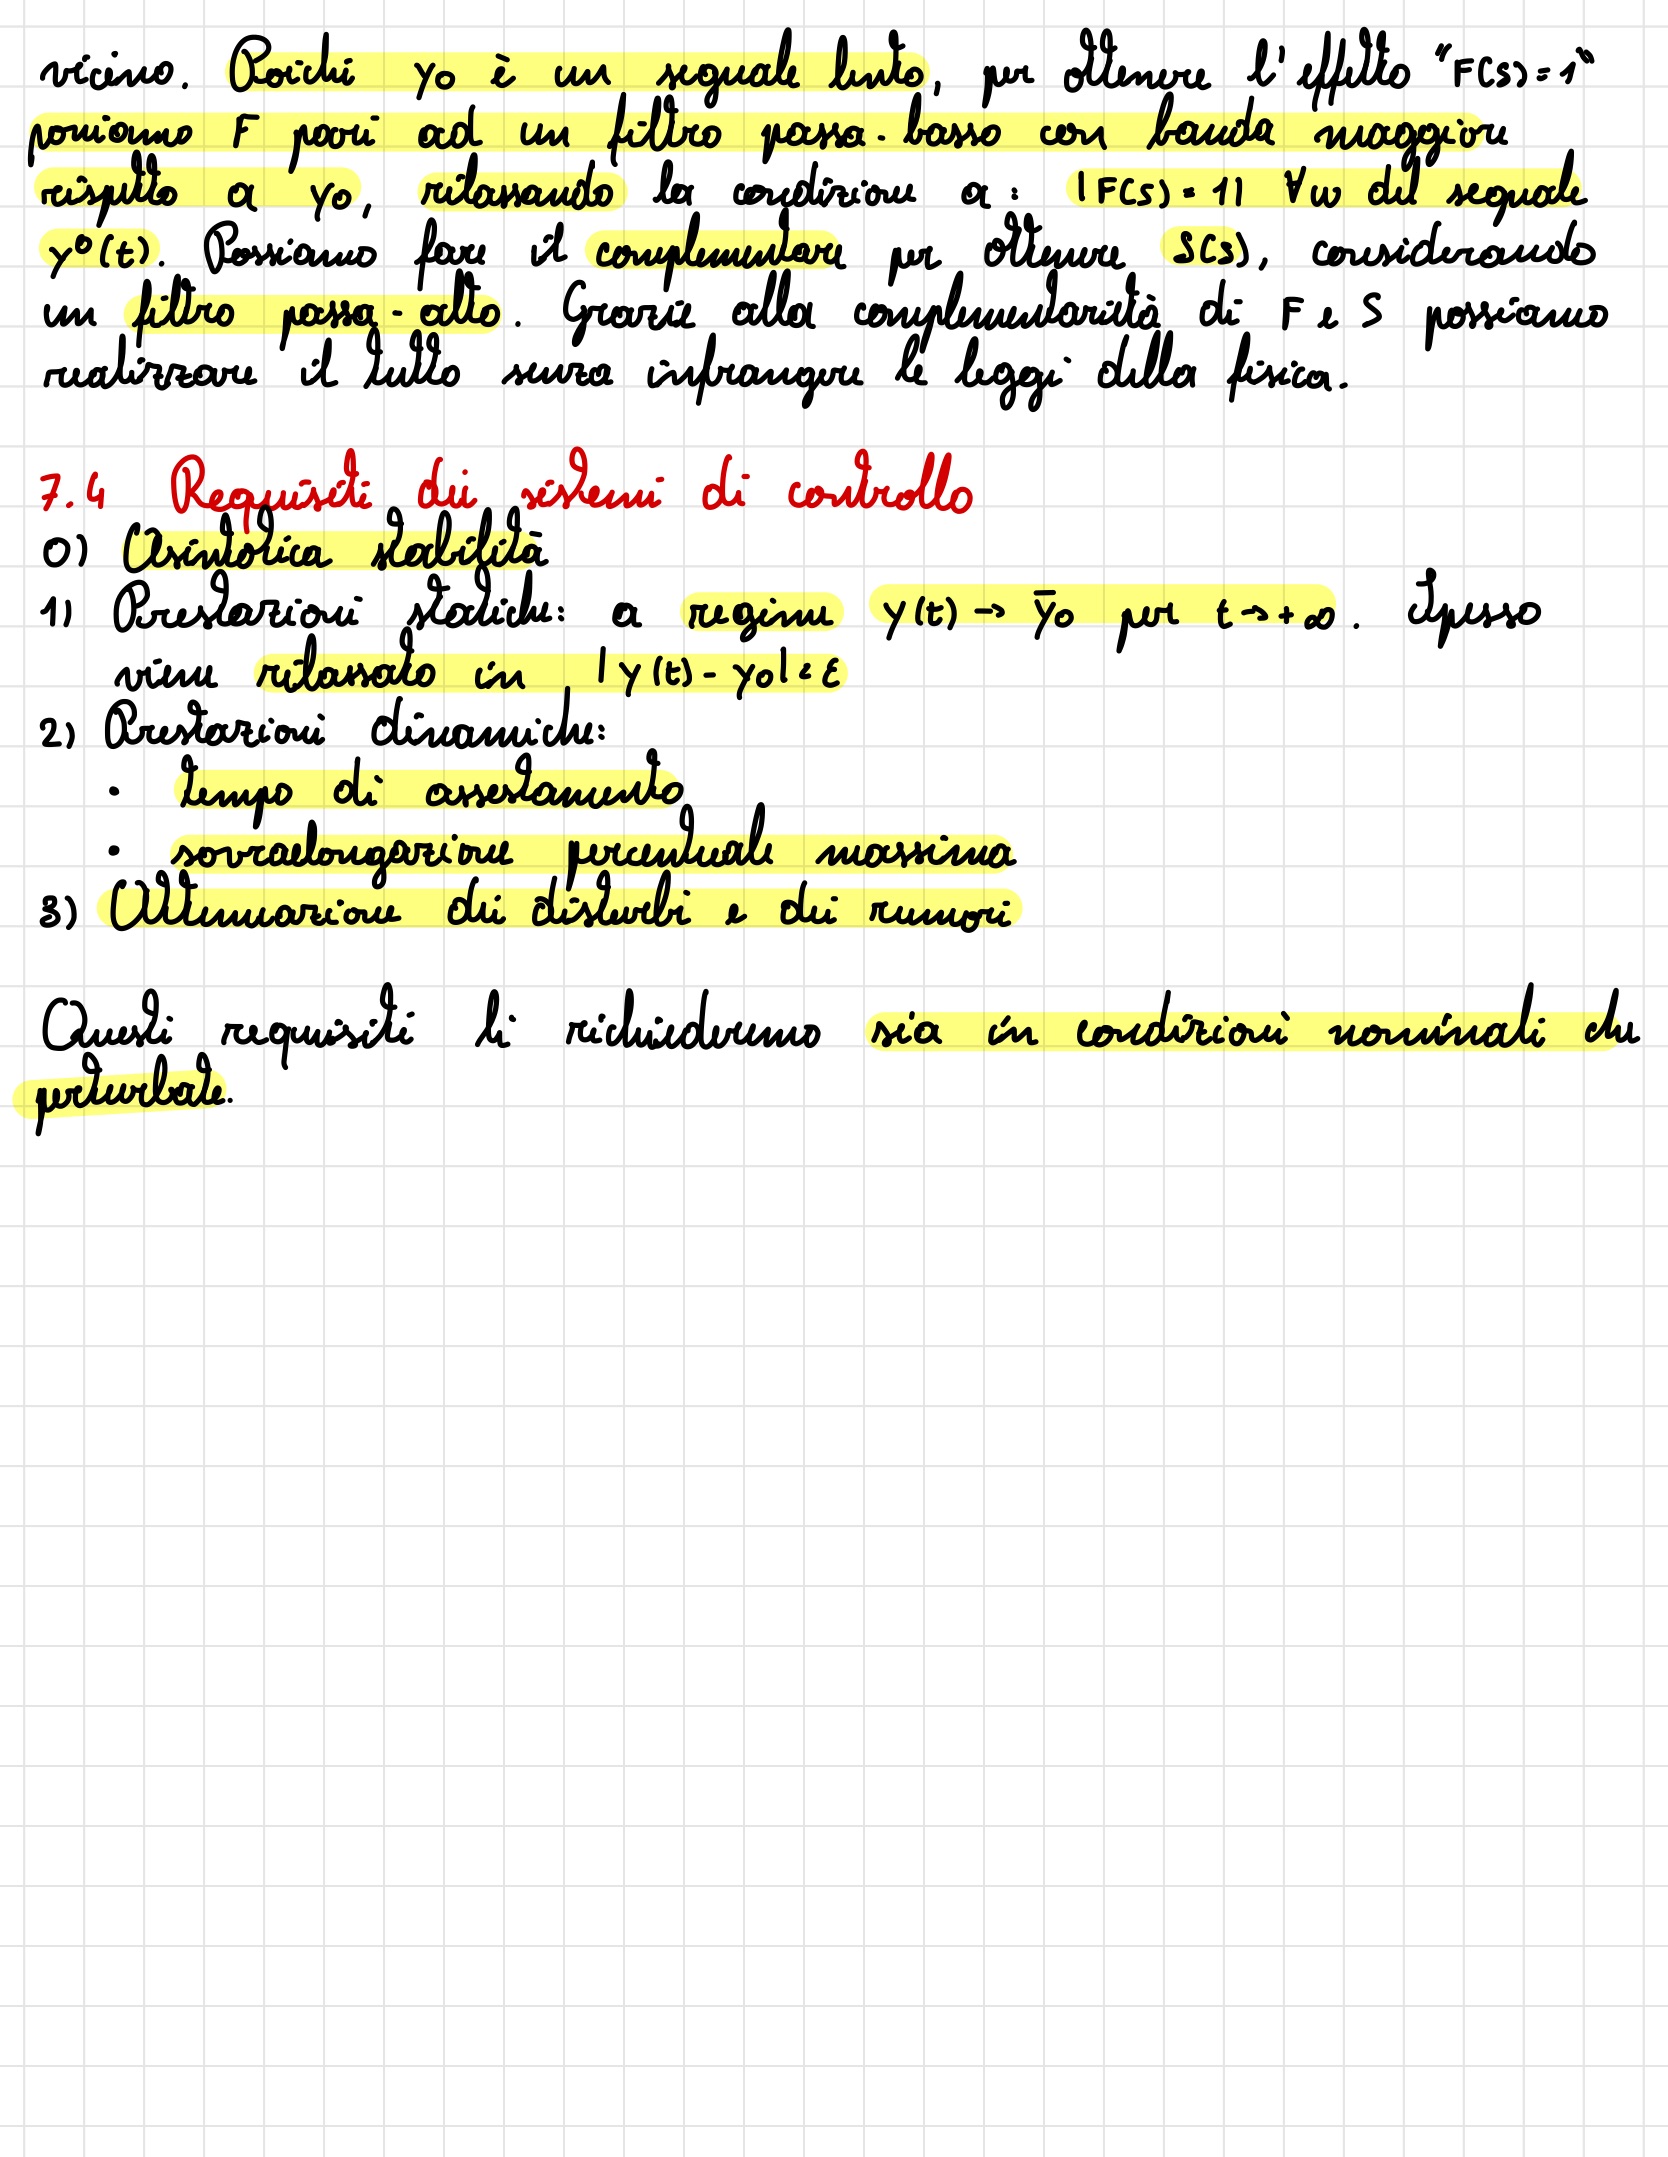 vicino. Poiché y₀ è un segnale lento, per ottenere l'effetto "F(s)=1"
poniamo F pari ad un filtro passa-basso con banda maggiore
rispetto a y₀, rilassando la condizione a: |F(s)=1| ∀ω del segnale
y⁰(t). Possiamo fare il complementare per ottenere S(s), considerando
un filtro passa-alto. Grazie alla complementarietà di F e S possiamo
realizzare il tutto senza infrangere le leggi della fisica.
7.4 Requisiti dei sistemi di controllo
0) Asintotica stabilità
1) Prestazioni statiche: a regime y(t) → ȳ₀ per t→+∞. Spesso
viene rilassato in |y(t)-y₀|<ε
2) Prestazioni dinamiche:
• tempo di assestamento
• sovraelongazione percentuale massima
3) Attenuazione dei disturbi e dei rumori
Questi requisiti li richiederemo sia in condizioni nominali che
perturbate.